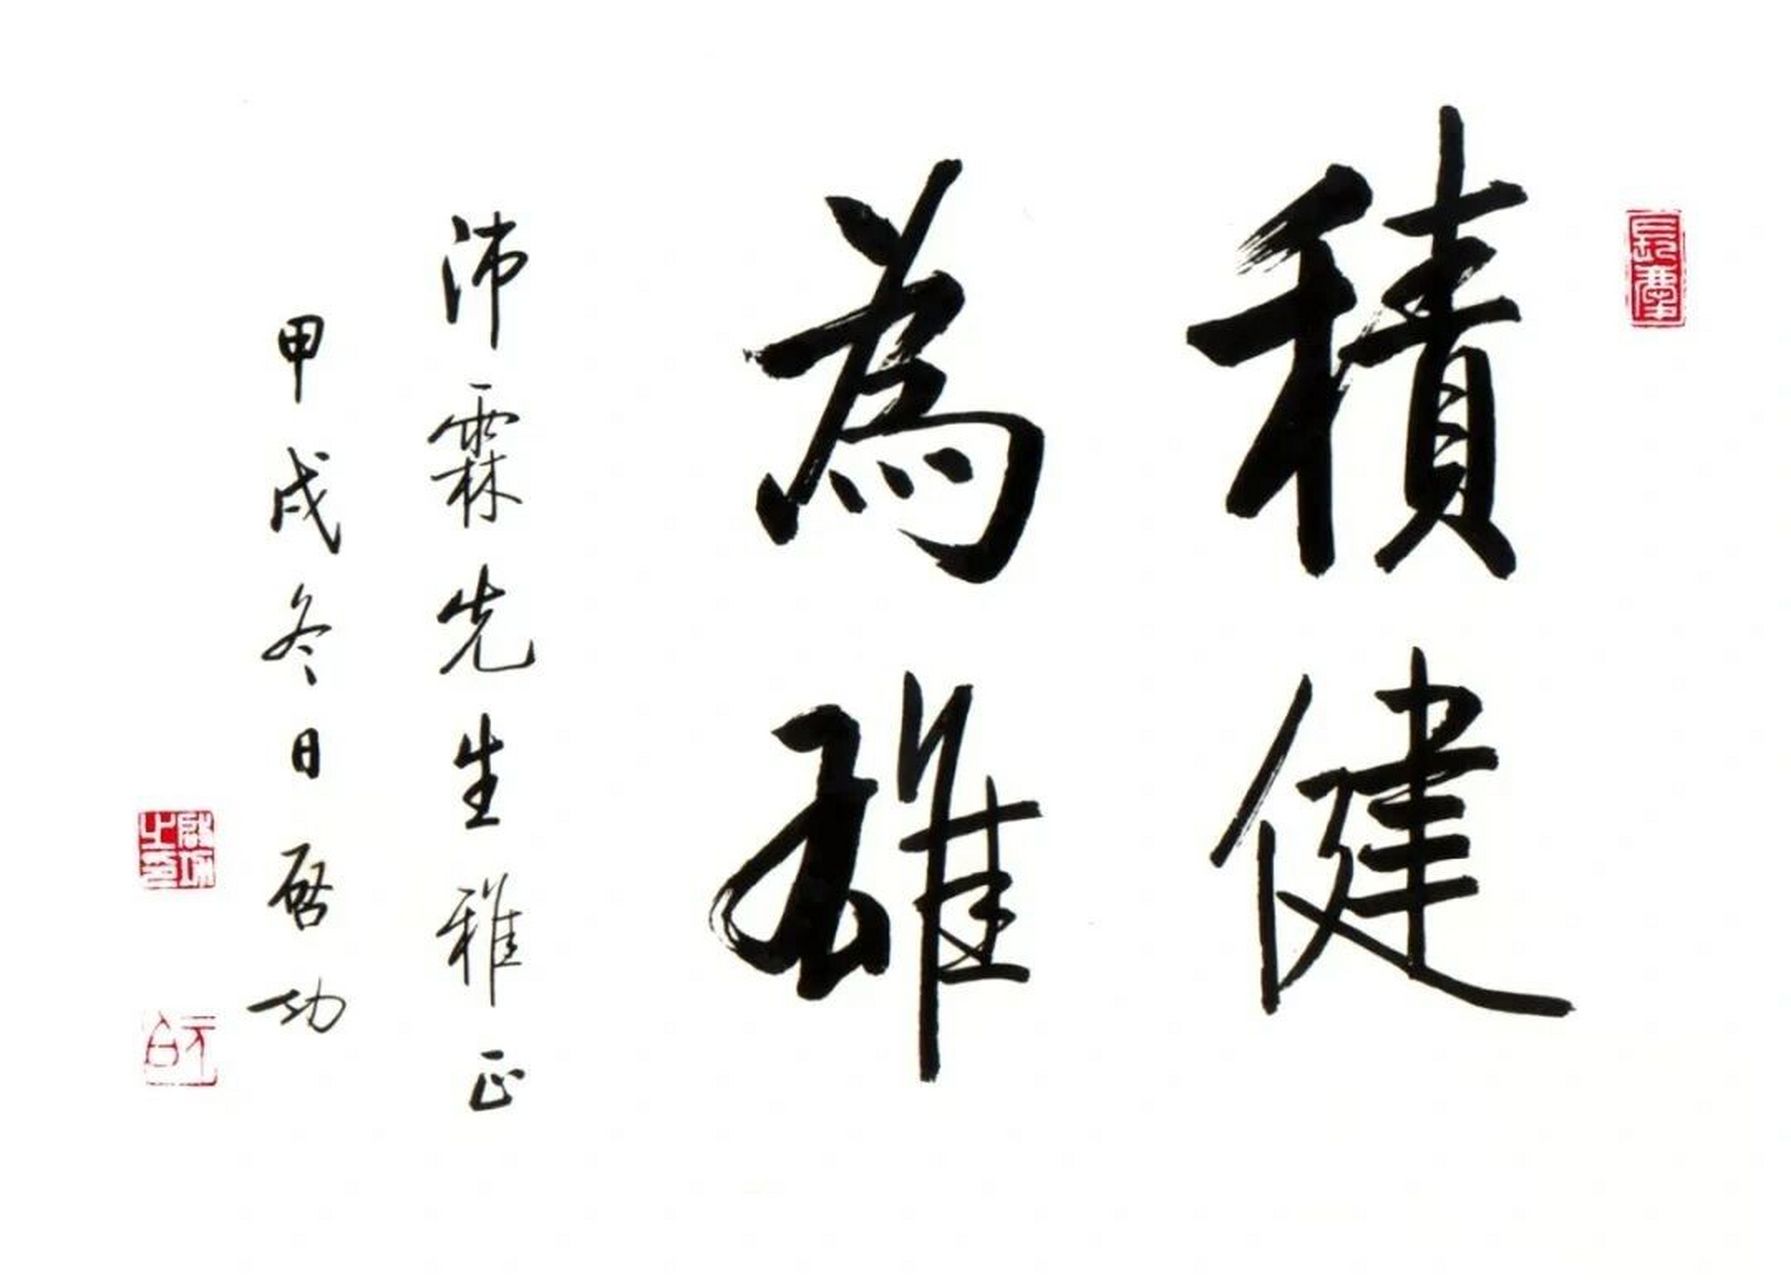 積健
為雄
沛霖先生雅正
甲戌冬日啓功
啓功之印